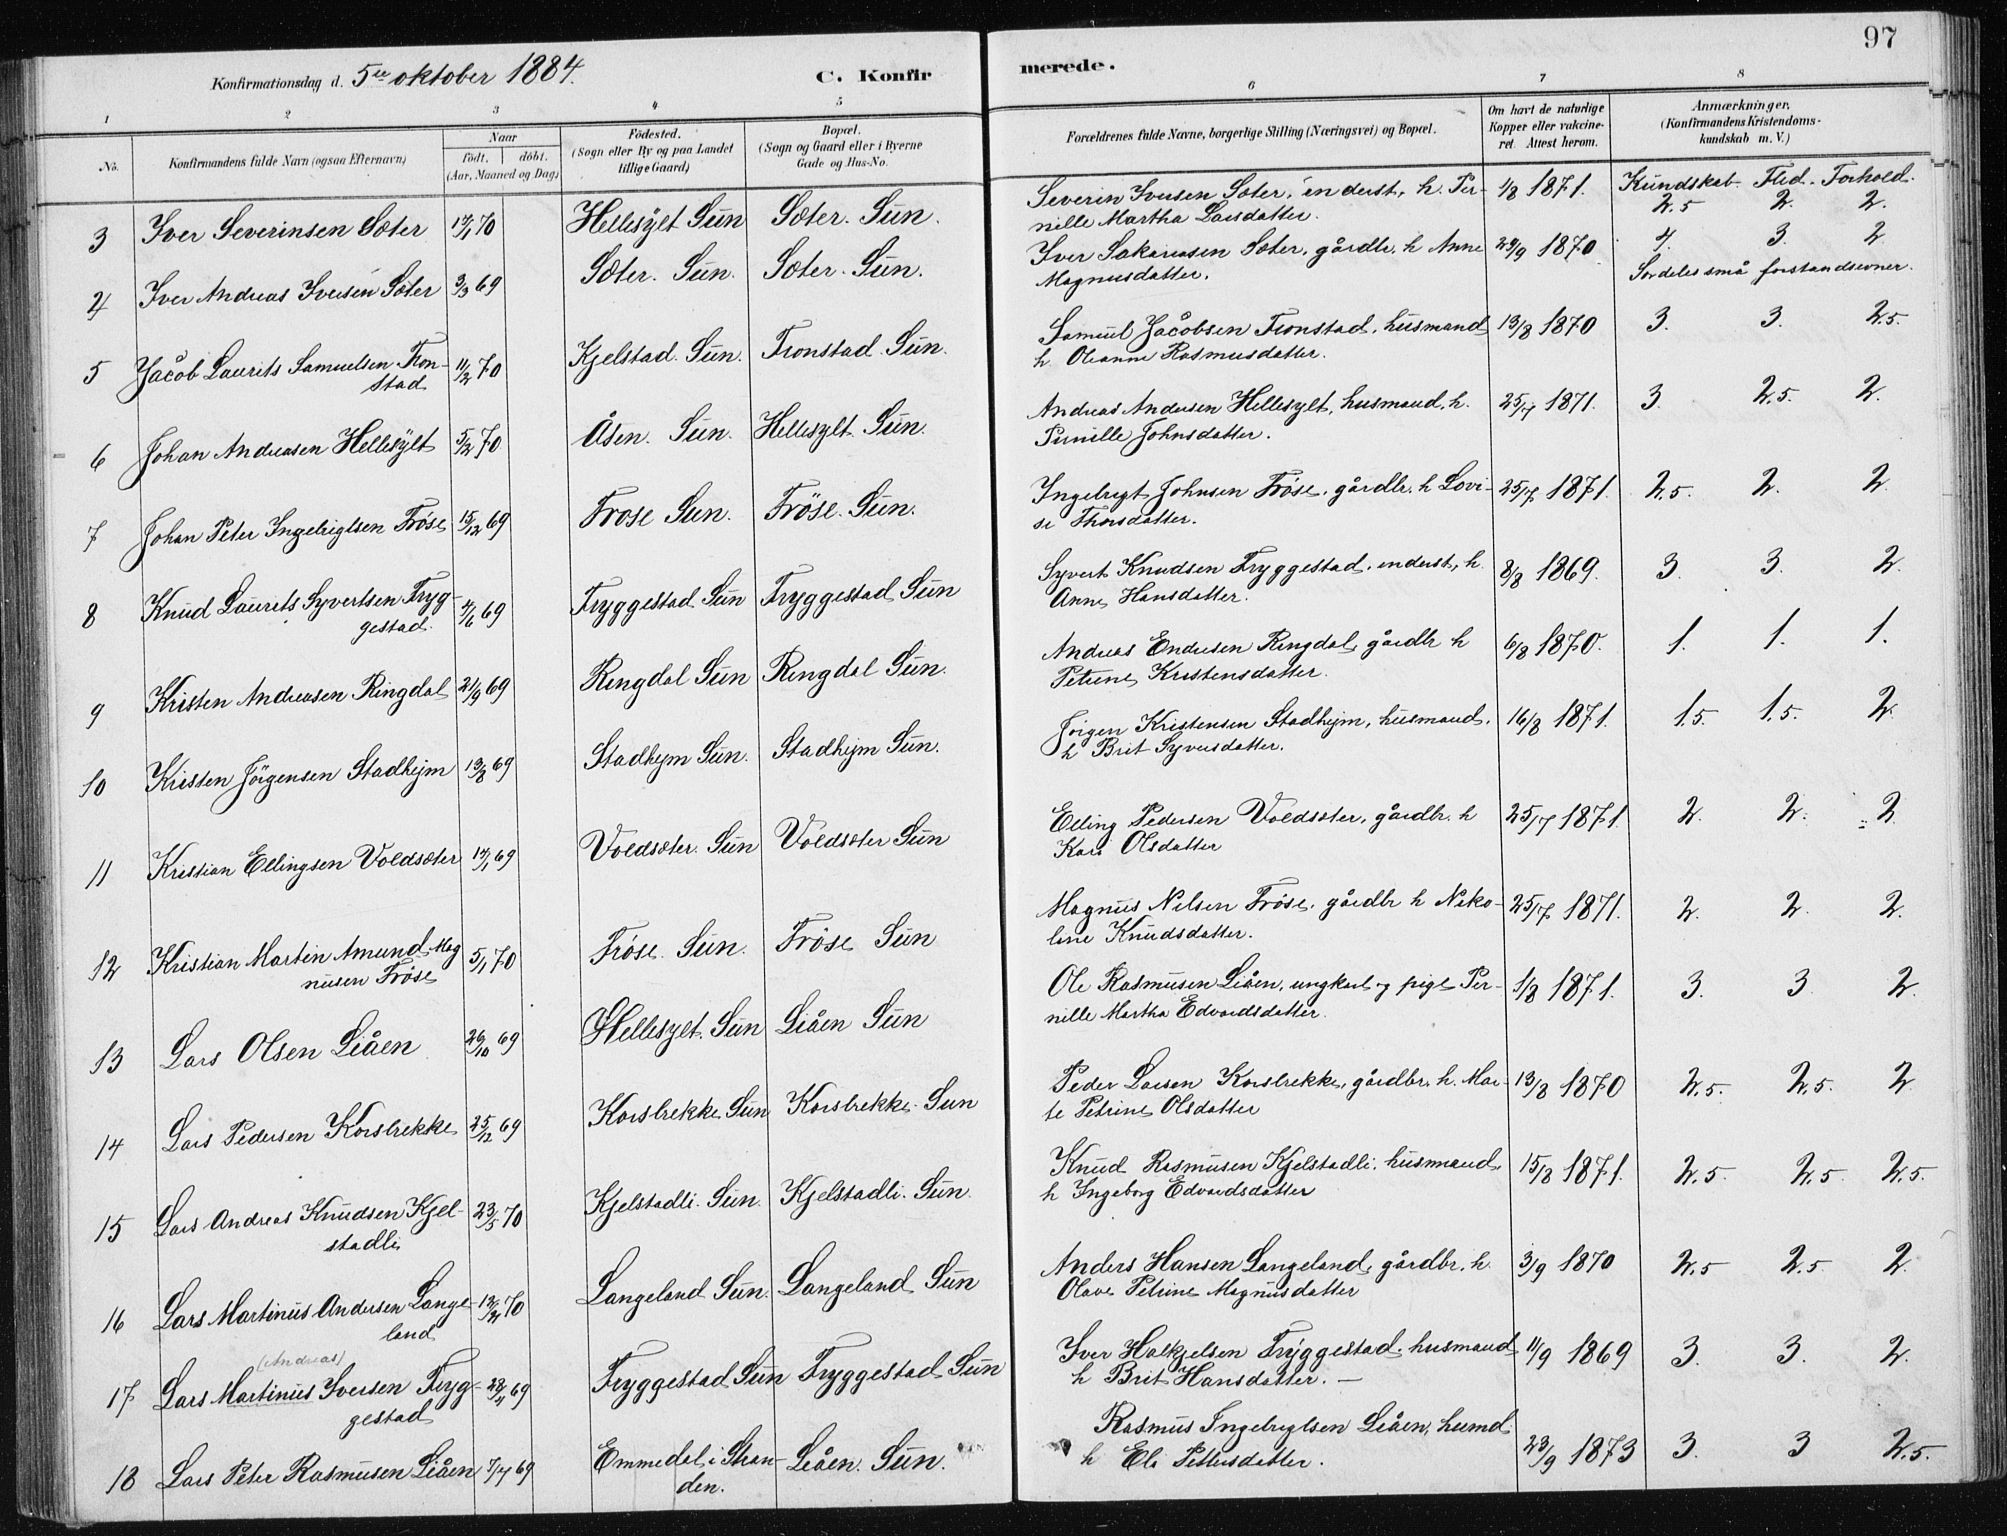 97
Konfirmationsdag d. 5te oktober 1884.
C. Konfirmerede.
1 2 3 4 5 6 7 8
No.
Konfirmandens fulde Navn (ogsaa Efternavn)
Naar
födt. döbt.
(Aar, Maaned og Dag)
Födested.
(Sogn eller By og paa Landet
tillige Gaard)
Bopæl.
(Sogn og Gaard eller i Byerne
Gade og Hus-No.
Forældrenes fulde Navne, borgerlige Stilling (Næringsvei) og Bopæl.
Om havt de naturlige
Kopper eller vakcine-
ret. Attest herom.
Anmærkninger.
(Konfirmandens Kristendoms-
kundskab m. V.)
Kundskab. Flid. Forhold.
3 Iver Severinsen Sæter 70 Hellesylt Sun Sæter. Sun. Severin Iversen Sæter, inderst, h. Per-
nille Martha Larsdatter. 1/8 1871. 2.5 2. 2.
4 Iver Andreas Iversen Sæter 3/3 69 Sæter. Sun. Sæter. Sun. Iver Sakariasen Sæter, gårdbr. h Anne
Magnusdatter. 29/9 1870. 4. 3. 2
Særdeles små forstandsevner.
5 Jacob Laurits Samuelsen Tron-
stad 11/2 70 Kjelstad. Sun. Tronstad Sun. Samuel Jacobsen Tronstad, husmand
h Oleanne Rasmusdatter. 13/8 1870 3. 3. 2.5.
6 Johan Andreasen Hellesylt 5/2 70 Åsen. Sun. Hellesylt Sun. Andreas Andersen Hellesylt, husmand, h.
Pernille Johnsdatter. 25/7 1871. 3. 2.5. 2.
7 Johan Peter Ingebrigtsen Fröse 15/12 69 Frose Sun. Fröse. Sun. Ingebrigt Johnsen Fröse, gårdbr. h Lovi-
se Thorsdatter. 25/7 1871. 2.5. 2. 2
8 Knud Laurits Syvertsen Tryg-
gestad. 4/6 69 Tryggestad Sun Tryggestad Sun Syvert Knudsen Tryggestad, inderst, h.
Anne Hansdatter. 8/8 1869. 3. 3. 2.
9 Kristen Andreasen Ringdal 21/9 69 Ringdal Sun Ringdal Sun. Andreas Endresen Ringdal, gårdbr h
Petrine Kristensdatter. 6/8 1870. 1. 1. 1.
10 Kristen Jörgensen Stadhejm 13/8 69 Stadhejm Sun. Stadhejm Sun. Jörgen Kristensen Stadhejm, husmand,
h Brit Syversdatter. 16/8 1871. 1.5. 1.5. 2.
11 Kristian Ellingsen Voldsæter 14/1 69 Voldsæter. Sun Voldsæter Sun Elling Pedersen Voldsæter, gårdbr. h
Kari Olsdatter 25/7 1871. 2. 2. 2
12 Kristian Martin Amund Mag
nusen Fröse 5/1 70 Fröse. Sun. Fröse Sun Magnus Nilsen Fröse, gårdbr h Niko-
line Knudsdatter. 25/7 1871. 2. 2. 2.
13 Lars Olsen Liåen 26/10 69 Hellesylt. Sun Liåen Sun Ole Rasmusen Liåen, ungkarl og pige Per-
nille Martha Edvardsdatter. 1/8 1871. 3. 3. 2.
14 Lars Pedersen Korsbrekke 25/12 69 Korsbrekke Sun Korsbrekke Sun Peder Larsen Korsbrekke, gårdbr. h. Mar-
te Petrine Olsdatter 13/8 1870 2.5. 2.5. 2
15 Lars Andreas Knudsen Kjel-
stadli 23/5 70 Kjelstadli. Sun. Kjelstadli. Sun. Knud Rasmusen Kjelstadli, husmand,
h Ingeborg Edvardsdatter 15/8 1871. 2.5. 2.5. 2.5.
16 Lars Martinus Andersen Lange-
land 70 Langeland Sun. Langeland Sun Anders Hansen Langeland, gårdbr. h.
Olave Petrine Magnusdatter 3/9 1870 2.5 2.5. 2.
(Andreas)
17 Lars Martinus Iversen Tryg-
gestad 69 Tryggestad Sun Tryggestad Sun Iver Halkjelsen Tryggestad, husmand
h Brit Hansdatter. — 11/9 1869 3. 3. 2.
18 Lars Peter Rasmusen Liåen 7/7 69 Emmedal i Stran-
den. Liåen. Sun. Rasmus Ingebrigtsen Liåen, husmd
h Eli Pettersdatter. 23/9 1873 3. 3 2.5.